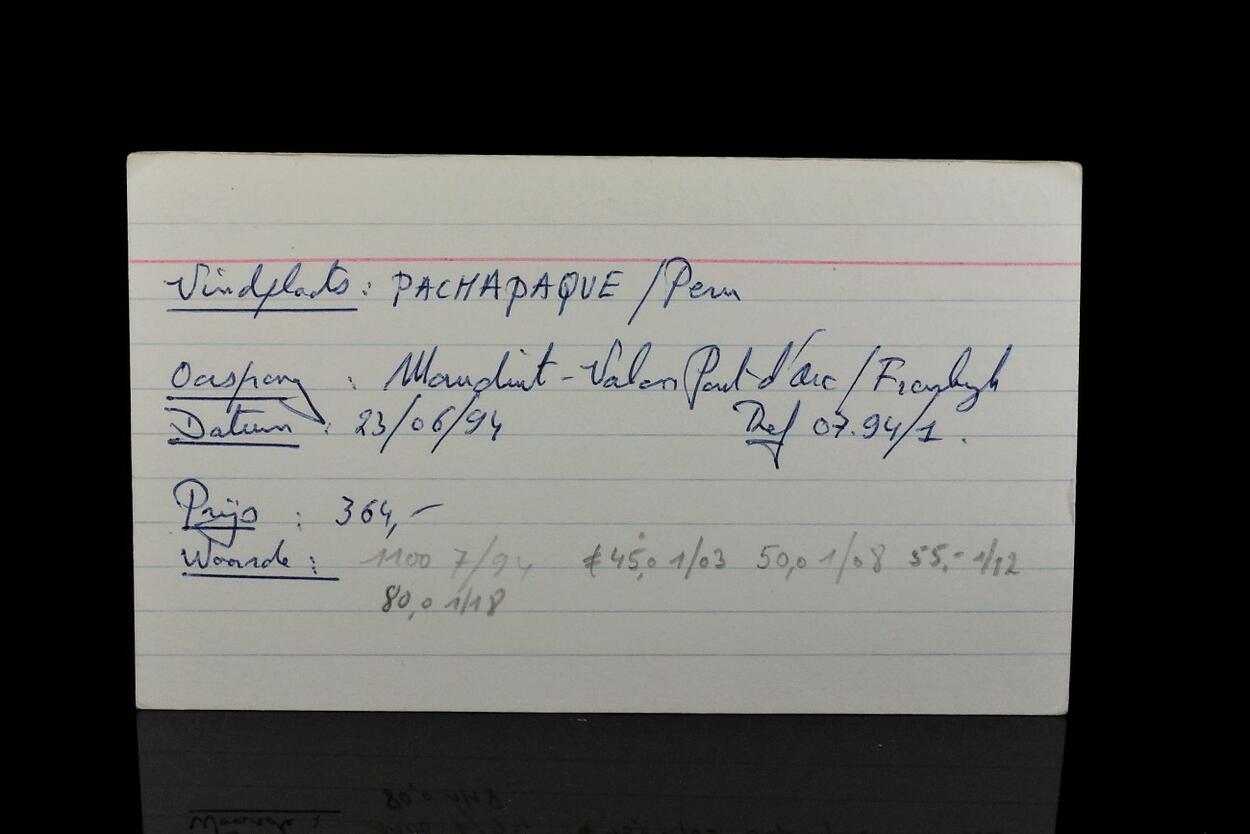 Vindplaats: PACHAPAQUE / Peru
Oorsprong : Maudint - Valon Pont d'arc / Frankrijk
Datum : 23/06/94 Ref 07.94/1.
Prijs : 364,-
Waarde : 1100 7/94 € 45,0 1/03 50,0 1/08 55,- 1/12
80,0 1/18